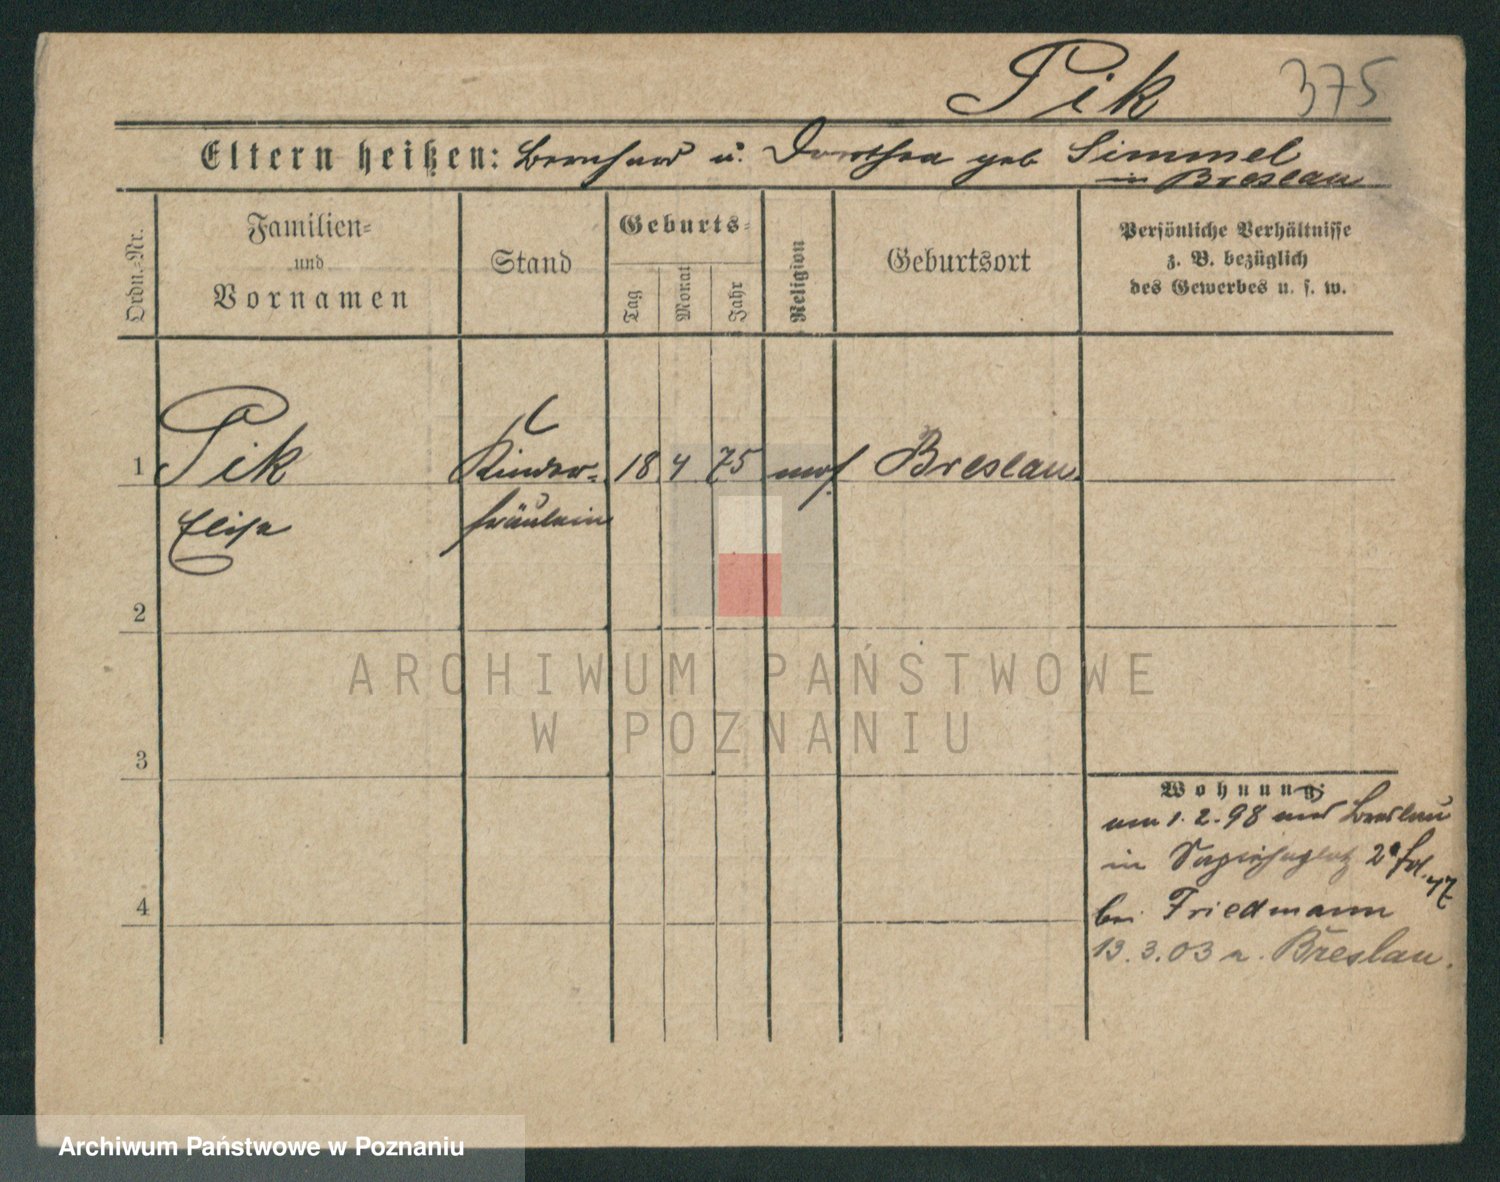 Pik 375
Eltern heißen: Bernhard u. Dorothea geb Simmel
in Breslau
Ordn.-Nr.
Familien-
und
Vornamen
Stand
Geburts-
Tag
Monat
Jahr
Religion
Geburtsort
Persönliche Verhältnisse
z. B. bezüglich
des Gewerbes u. s. w.
1 Pik Kinder- 18 4 75 mos. Breslau
Elise fräulein
2
3
4
ARCHIWUM PAŃSTWOWE
W POZNANIU
Wohnung:
am 1.2.98 aus Breslau
in Sapiehaplatz 2a
bei Friedmann
13.3.03 n. Breslau.
Archiwum Państwowe w Poznaniu